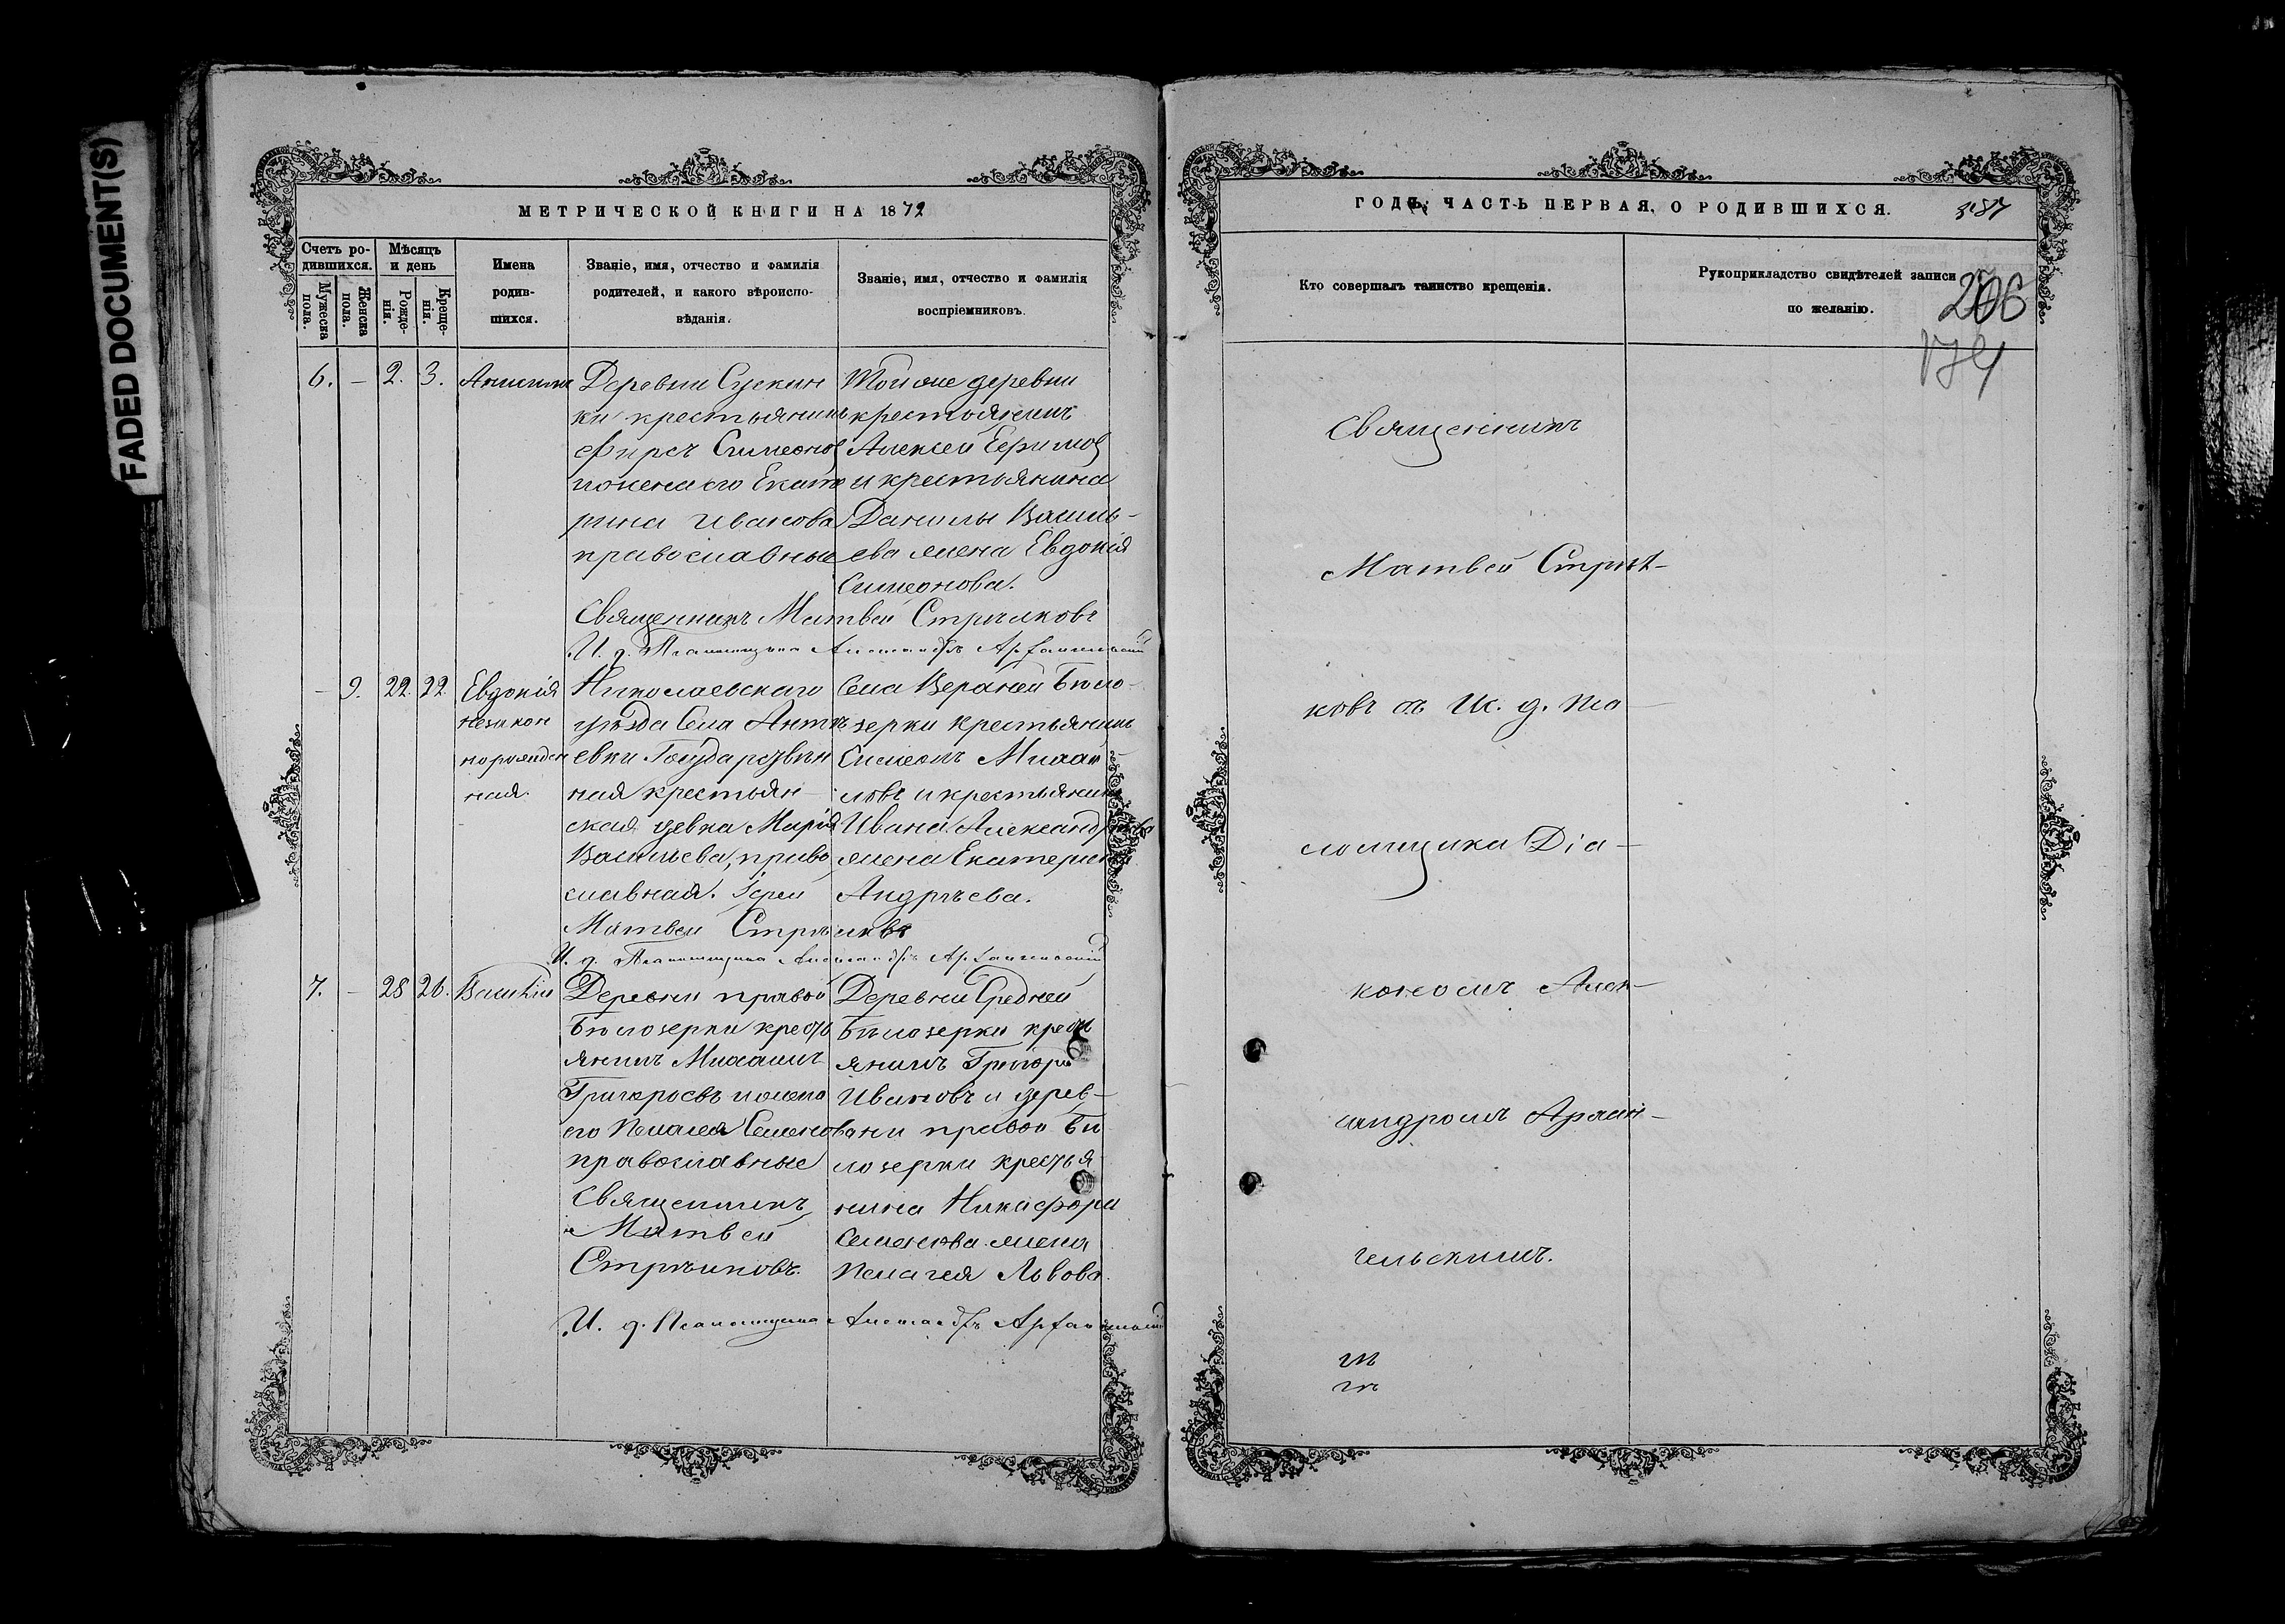 FADED DOCUMENT(S)
МЕТРИЧЕСКОЙ КНИГИ НА 1872
Счетъ ро-
дившихся.
Мужеска
пола.
Женска
пола.
Мѣсяцъ
и день
Рожде-
нія.
Креще-
нія.
Имена
родив-
шихся.
Званіе, имя, отчество и фамилія
родителей, и какого вѣроиспо-
вѣданія.
Званіе, имя, отчество и фамилія
воспріемниковъ.
6. – 2. 3.
Деревни Сускин
ки крестьянинъ
Фирсъ Симеонов
и жена его Екате
рина Иванова
православные
Той же деревни
крестьянинъ
Алексей Ефимов
и крестьянина
Данилы Василь-
ева жена Евдокія
Симеонова.
Священникъ Матвей Стрѣлковъ
И. д. Псаломщика Александръ Архангельскій
– 9. 22. 22
Евдокія
незакон
норожден
ная.
Николаевскаго
уѣзда Села Антк
евки Государствен
ная крестьян-
ская девка Марія
Васильева, право
славная. Іерей
Матвей Стрѣлковъ
Села Верхней Бѣло-
зерки крестьянинъ
Симеонъ Михай-
ловъ и крестьянина
Ивана Александрова
жена Екатерина
Андрѣева.
И. д. Псаломщика Александръ Архангельскій
7. – 25 26. Василій
Деревни правой
Бѣлозерки кресть
янинъ Михаилъ
Григорьевъ и жена
его Пелагея Семенова
православные
Священникъ
Матвей
Стрѣлковъ.
Деревни Средней
Бѣлозерки кресть
янинъ Григорій
Ивановъ и дерев-
ни правой Бѣ
лозерки крестья
нина Никифора
Семенова жена
Пелагея Львова.
И. д. Псаломщика Александръ Архангельскій
ГОДЪ, ЧАСТЬ ПЕРВАЯ, О РОДИВШИХСЯ.
Кто совершалъ таинство крещенія.
Рукоприкладство свидѣтелей записи
по желанію.
206
Священникъ
Матвей Стрѣл-
ковъ съ И. д. пса-
ломщика Діа-
кономъ Алек-
сандромъ Архан-
гельскимъ.